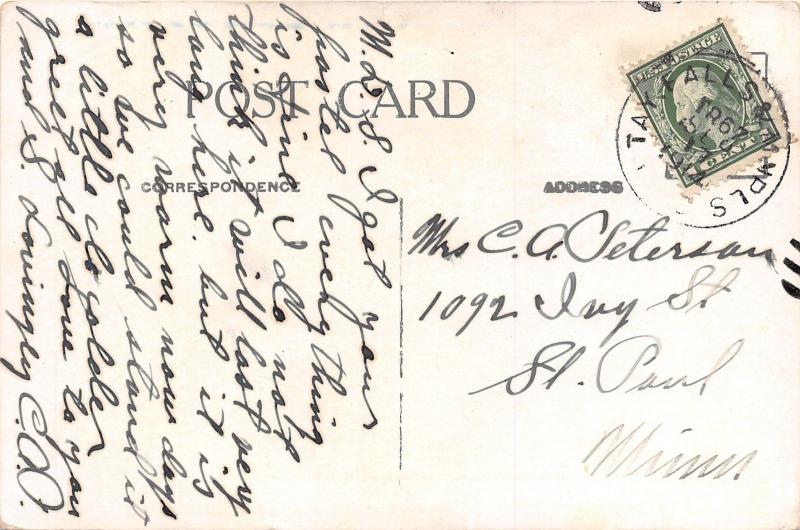 POST CARD
CORRESPONDENCE
ADDRESS
U.S. POSTAGE
CENT
TAY. FALLS & MPLS
Mrs C. A. Peterson
1092 Ivy St
St. Paul
Minn
M. L. S. I got your
postel everything
is fine I do not
think it will last very
long here. but it is
very warm now days
so we could stand it
a little de colder
greet all Love to you
and S. Lovingly C.A.P.